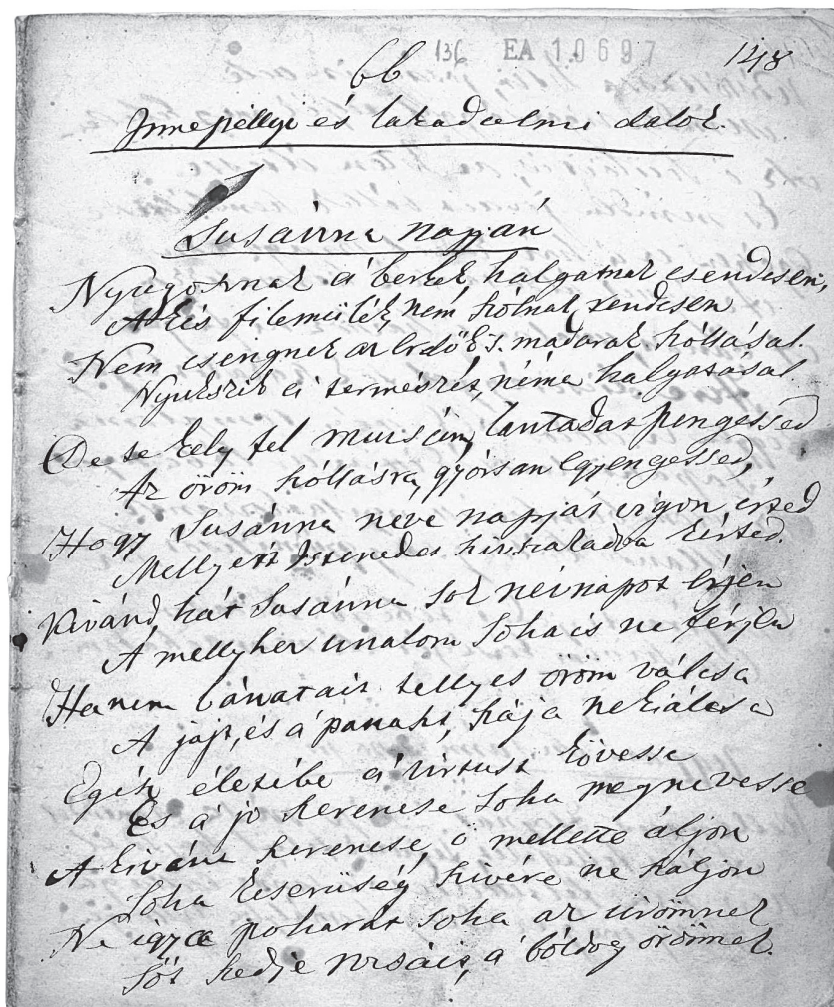 136 EA 10697 148
66
Innepéllyi és lakadalmi dalok.
Susánna napján
Nyugosznak a' berkek, halgatnak csendesen,
A kis filemilék, nem szólnak rendesen
Nem csengnek az Erdők s. madarak szóllásal.
Nyukszik a' természet, néma halgatásal
De te kely fel musám, lantadat pengessed
Az öröm szóllásra, gyórsan Egyengessed,
Hogy Susánna neve napját vigon, érted
Mellyett Istenedes hív szakadva kérted.
Kivánd, hát Susánna sok neinapot Érjen
A mellyhez unalom soha is ne férjen
Hanem bánatait tellyes öröm válcsa
A jajt, és á panaszt, szája ne kiálcsa
Egész életébe a' virtust kövesse
És á jo szerencse soha meg nevesse
A kiváná szerencse, ö mellette áljon
Soha keserüség szivére ne száljon
Ne igya poharát soha az ürömnek
Söt szedje rosáit, á bóldog örömnek.